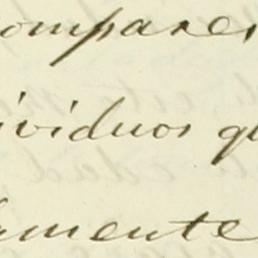 ompares
ividuos q
amente